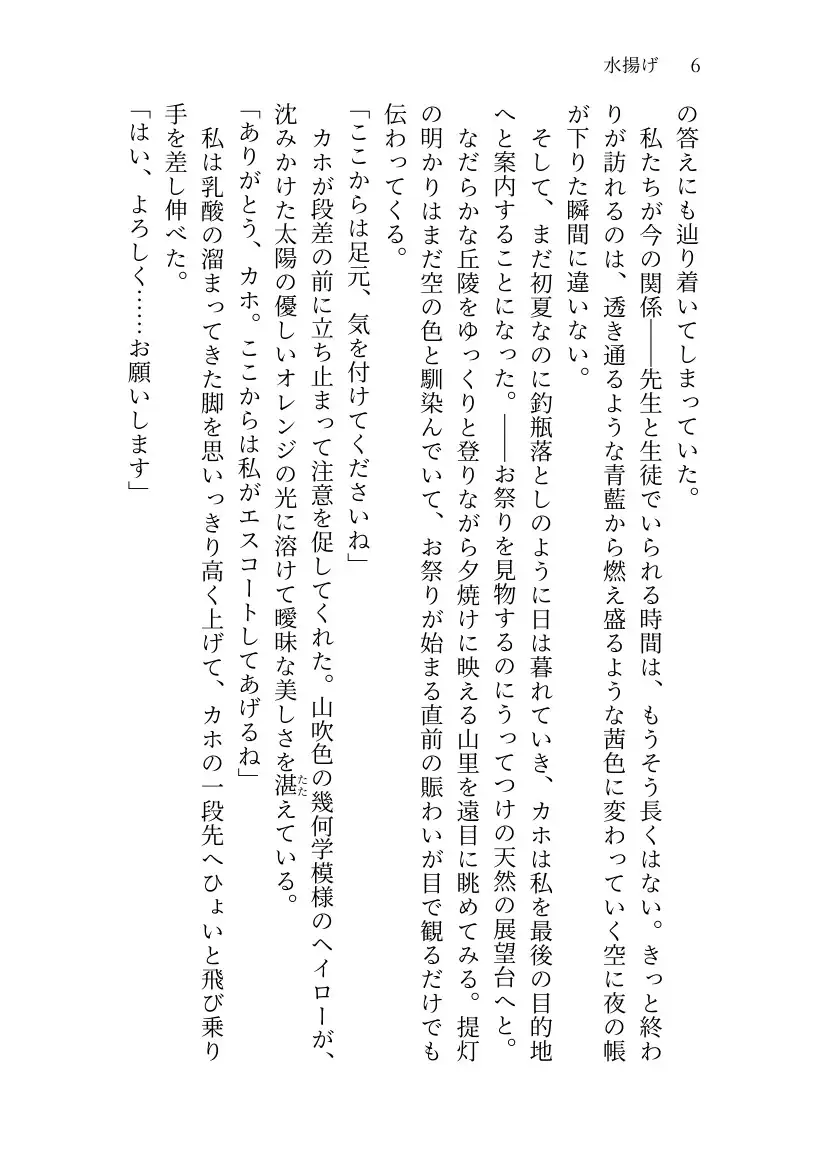 水揚げ 6
の答えにも辿り着いてしまっていた。
私たちが今の関係――先生と生徒でいられる時間は、もうそう長くはない。きっと終わ
りが訪れるのは、透き通るような青藍から燃え盛るような茜色に変わっていく空に夜の帳
が下りた瞬間に違いない。
そして、まだ初夏なのに釣瓶落としのように日は暮れていき、カホは私を最後の目的地
へと案内することになった。――お祭りを見物するのにうってつけの天然の展望台へと。
なだらかな丘陵をゆっくりと登りながら夕焼けに映える山里を遠目に眺めてみる。提灯
の明かりはまだ空の色と馴染んでいて、お祭りが始まる直前の賑わいが目で観るだけでも
伝わってくる。
「ここからは足元、気を付けてくださいね」
カホが段差の前に立ち止まって注意を促してくれた。山吹色の幾何学模様のヘイローが、
沈みかけた太陽の優しいオレンジの光に溶けて曖昧な美しさを湛えている。
たた
「ありがとう、カホ。ここからは私がエスコートしてあげるね」
私は乳酸の溜まってきた脚を思いっきり高く上げて、カホの一段先へひょいと飛び乗り
手を差し伸べた。
「はい、よろしく……お願いします」